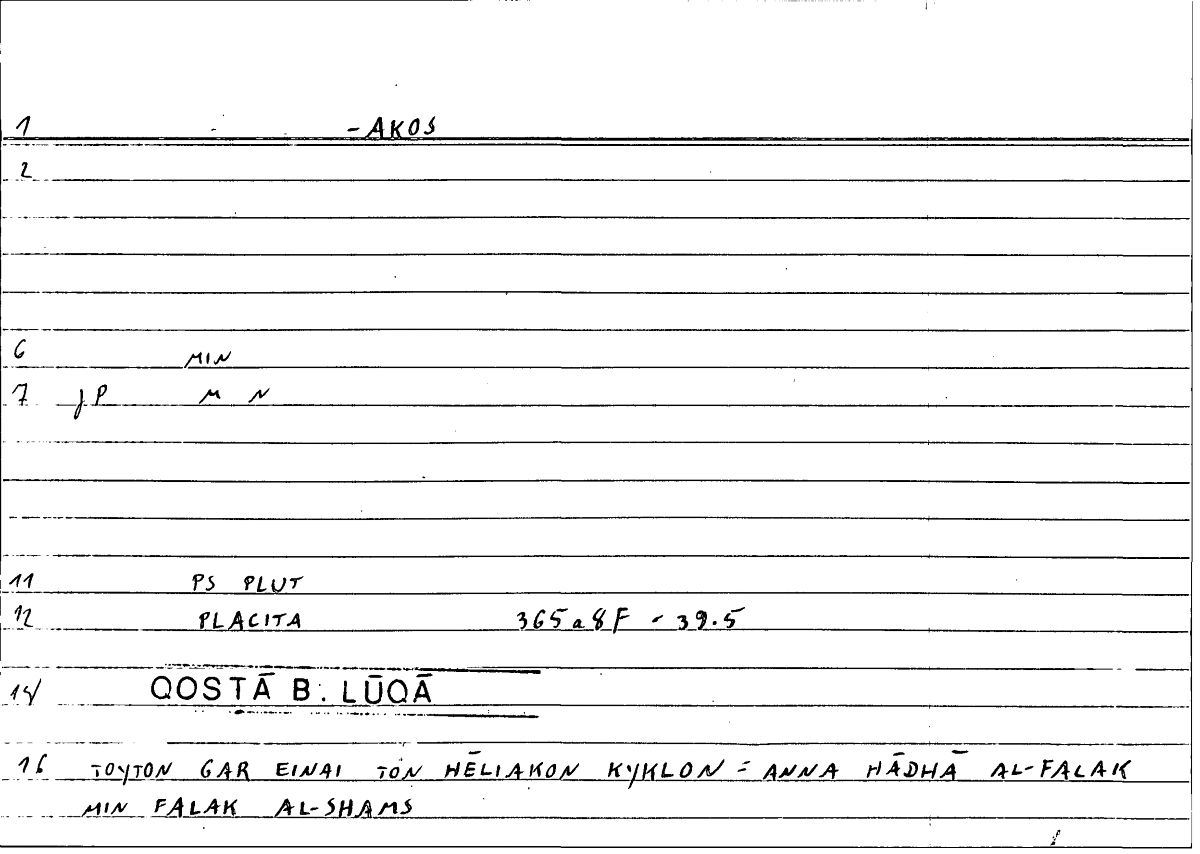 1 -AKOS
2
6 MIN
7 JP M N
11 PS PLUT
12 PLACITA 365a8F - 39.5
14 QOSTĀ B. LŪQĀ
16 TOYTON GAR EINAI TON HĒLIAKON KYKLON = ANNA HĀDHĀ AL-FALAK
MIN FALAK AL-SHAMS